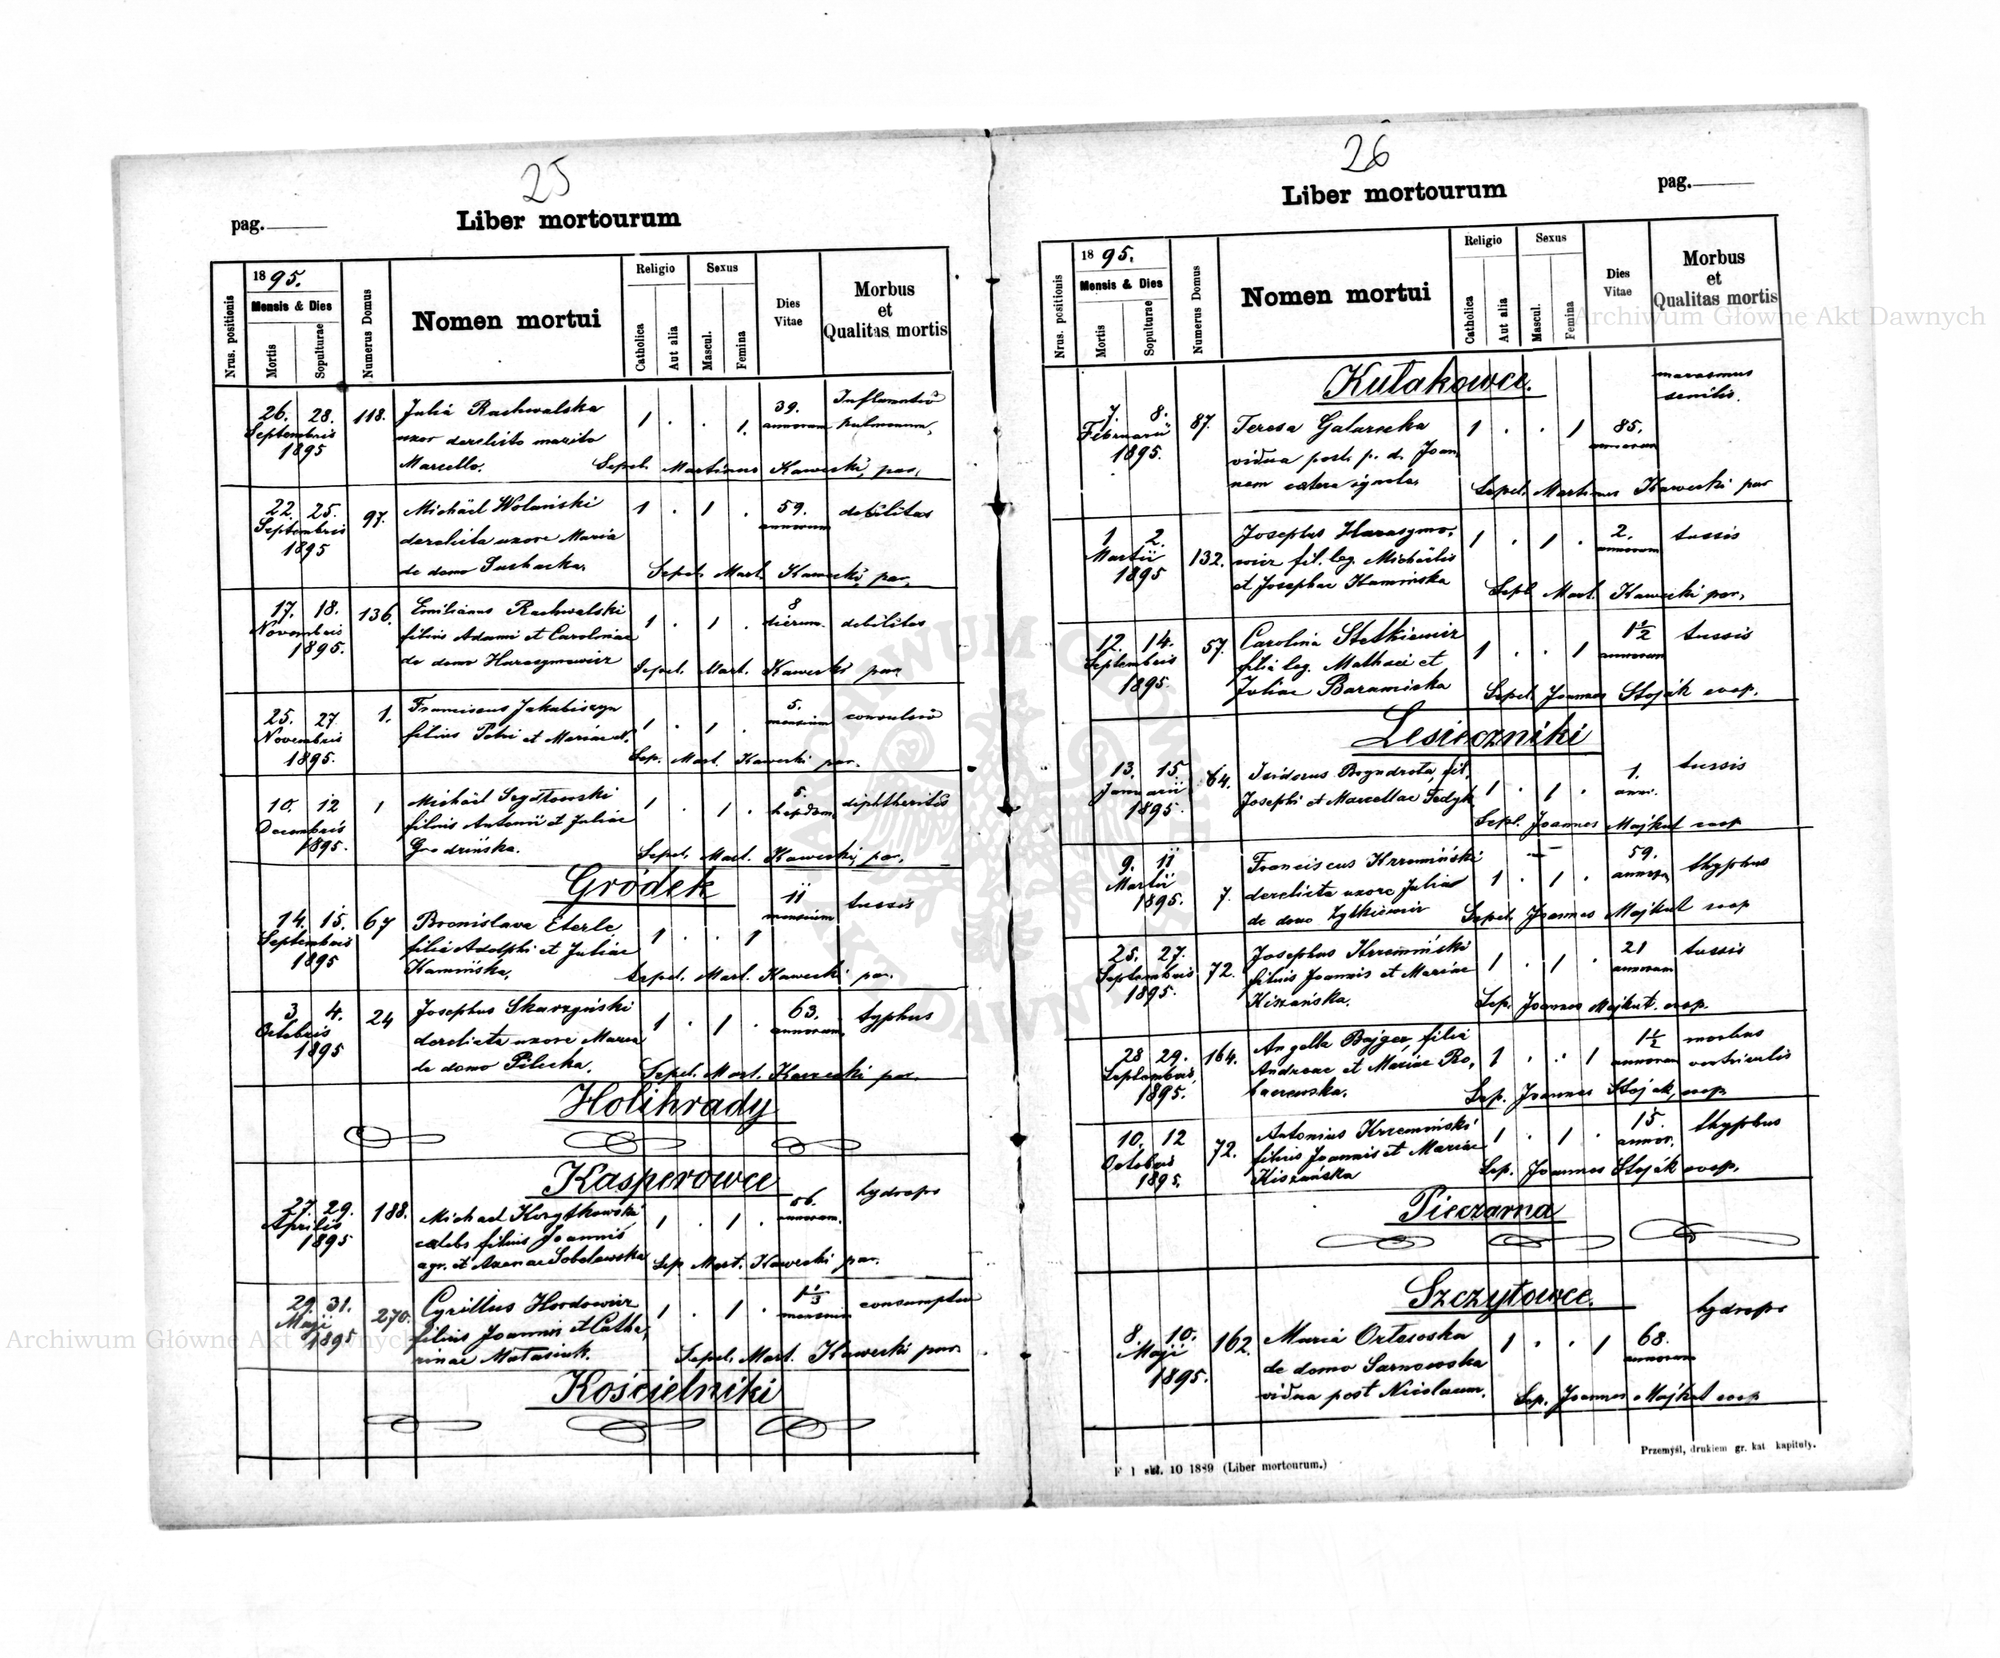 25
pag.
Liber mortourum
Nrus. positionis
1895.
Mensis & Dies
Mortis
Sepulturae
Numerus Domus
Nomen mortui
Religio
Catholica
Aut alia
Sexus
Mascul.
Femina
Dies Vitae
Morbus
et
Qualitas mortis
26. 28. 118. Julia Rachwalska 1 . . 1. 39. Inflammatio
Septembris uxor derelicto marito annorum pulmonum.
1895 Marcello. Sepel. Martinus Kawecki, par.
22. 25. 97. Michäel Wolański 1 . 1 . 59. debilitas
Septembris derelicta uxore Maria annorum
1895 de domo Suchacka. Sepel. Mart. Kawecki, par.
17. 18. 136. Emilianus Rachwalski 1 . 1 . 8 debilitas
Novembris filius Adami et Carolinae dierum.
1895. de domo Harasymowicz Sepel. Mart. Kawecki par.
25. 27. 1. Franciscus Jakubiszyn 1 . 1 . 5. convulsio
Novembris filius Petri et Mariae mensium
1895. Sep. Mart. Kawecki par.
10. 12 1 Michäel 1 . 1 . 5. diphtheritis
Decembris filius Antonii et Juliae hepdom.
1895. Grodzińska. Sepel. Mart. Kawecki, par.
Gródek
14. 15. 67 Bronislava Eterle 1 . . 1 11 tussis
Septembris filia Adolphi et Juliae mensium
1895 Kamińska. Sepel. Mart. Kawecki par.
3. 4. 24 Josephus Skarzyński 1 . 1 . 63. typhus
Octobris derelicta uxore Maria annorum
1895 de domo Pilecka. Sepel. Mart. Kawecki par.
Holihrady
Kasperowce
27. 29. 188. Michael 1 . 1 . 56. hydrops
Aprilis caelebs filius Joannis annorum.
1895 agr. et Sobolewska Sep. Mart. Kawecki par.
29. 31. 270. Cyrillus Hordowicz 1 . 1 . 1 1/3 consumptio
Maji filius Joannis et Catha- mensium
1895 rinae Matasiuk. Sepel. Mart. Kawecki par.
Kościelniki
26
Liber mortourum
pag.
Nrus. positionis
1895.
Mensis & Dies
Mortis
Sepulturae
Numerus Domus
Nomen mortui
Religio
Catholica
Aut alia
Sexus
Mascul.
Femina
Dies Vitae
Morbus
et
Qualitas mortis
Kułakowce. marasmus
senilis.
7. 8. 87. Teresa 1 . . 1 85.
Februarii vidua post. p. d. Joan annorum
1895. nem cetera ignota. Sepel. Martinus Kawecki par
1 2. 132. Josephus Harasymo- 1 . 1 . 2. tussis
Martii wicz fil. leg. Michäelis annorum
1895 et Josephae Kamińska Sepel Mart. Kawecki par.
12. 14. 57. Carolina Stetkiewicz 1 . . 1 1 1/2 tussis
Septembris filia leg. Mathaei et annorum
1895. Juliae Sepel. Joannes Stojak coop.
Lesieczniki
13. 15 64. Isidorus fil. 1 . 1 . 1. tussis
Januarii Josephi et Marcellae Fedyk anni.
1895. Sepl. Joannes Majkut coop
9. 11 7. Franciscus Krzemiński 1 . 1 . 59. thyphus
Martii derelicta uxore Julia annorum
1895. de domo Żytkiewicz Sepel. Joannes Majkut coop
25. 27. 72. Josephus Krzemiński 1 . 1 . 21 tussis
Septembris filius Joannis et Mariae annorum
1895. Kiszańska. Sep. Joannes Majkut. coop.
28 29. 164. Angella Bajger, filia 1 . . 1 1 1/2 morbus
Septembris Andreae et Mariae Ro- annorum ventriculis
1895. Sep. Joannes Stojak, coop.
10. 12 72. Antonius Krzemiński 1 . 1 . 15. thyphus
Octobris filius Joannis et Mariae annor.
1895. Kiszańska Sep. Joannes Stojak coop.
Pieczarna
Szczytowce. hydrops
8. 10. 162. Maria 1 . . 1 68.
Maji de domo Sarnowska annorum
1895. vidua post Nicolaum. Sep. Joannes Majkut coop
F 1 skł. 10 1889 (Liber mortourum.)
Przemyśl, drukiem gr. kat kapituły.
Archiwum Główne Akt Dawnych
Archiwum Główne Akt Dawnych
ARCHIWUM GŁÓWNE AKT DAWNYCH